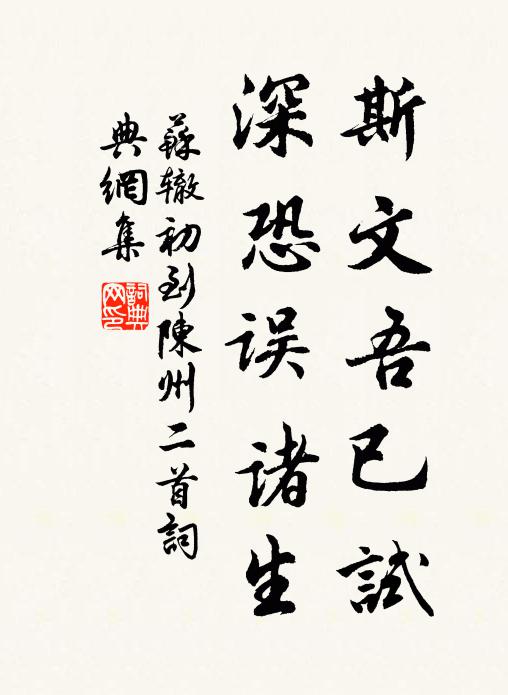 斯文吾已試
深恐误诸生
蘇辙初到陳州二首詞
典網集
詞典网印